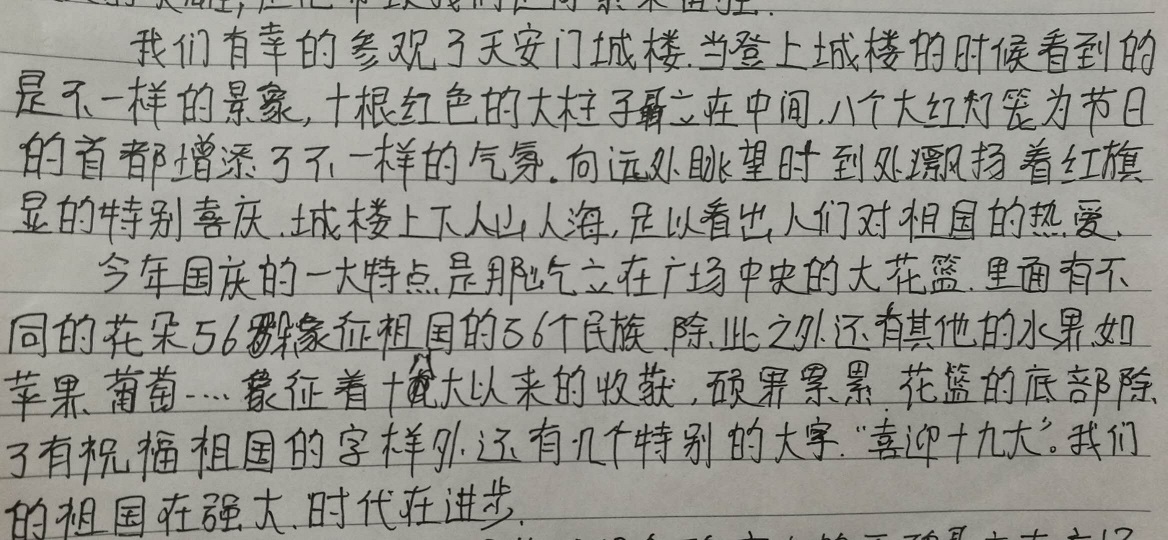 我们有幸的参观了天安门城楼.当登上城楼的时候看到的
是不一样的景象,十根红色的大柱子矗立在中间.八个大红灯笼为节日
的首都增添了不一样的气氛.向远处眺望时到处飘扬着红旗
显的特别喜庆.城楼上下人山人海,足以看出人们对祖国的热爱.
今年国庆的一大特点是那屹立在广场中央的大花篮.里面有不
同的花朵56象征祖国的56个民族.除此之外还有其他的水果如
苹果、葡萄……象征着十八大以来的收获,硕果累累.花篮的底部除
了有祝福祖国的字样外.还有几个特别的大字."喜迎十九大"。我们
的祖国在强大.时代在进步.